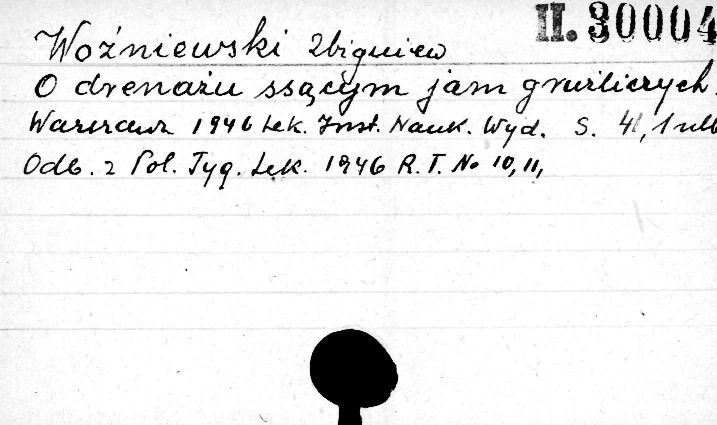 II. 30004
Woźniewski Zbigniew
O drenażu ssącym jam gruźliczych.
Warszawa 1946 Lek. Inst. Nauk. Wyd. S. 41, 1 nlb
Odb. z Pol. Tyg. Lek. 1946 R. I. No 10, 11,